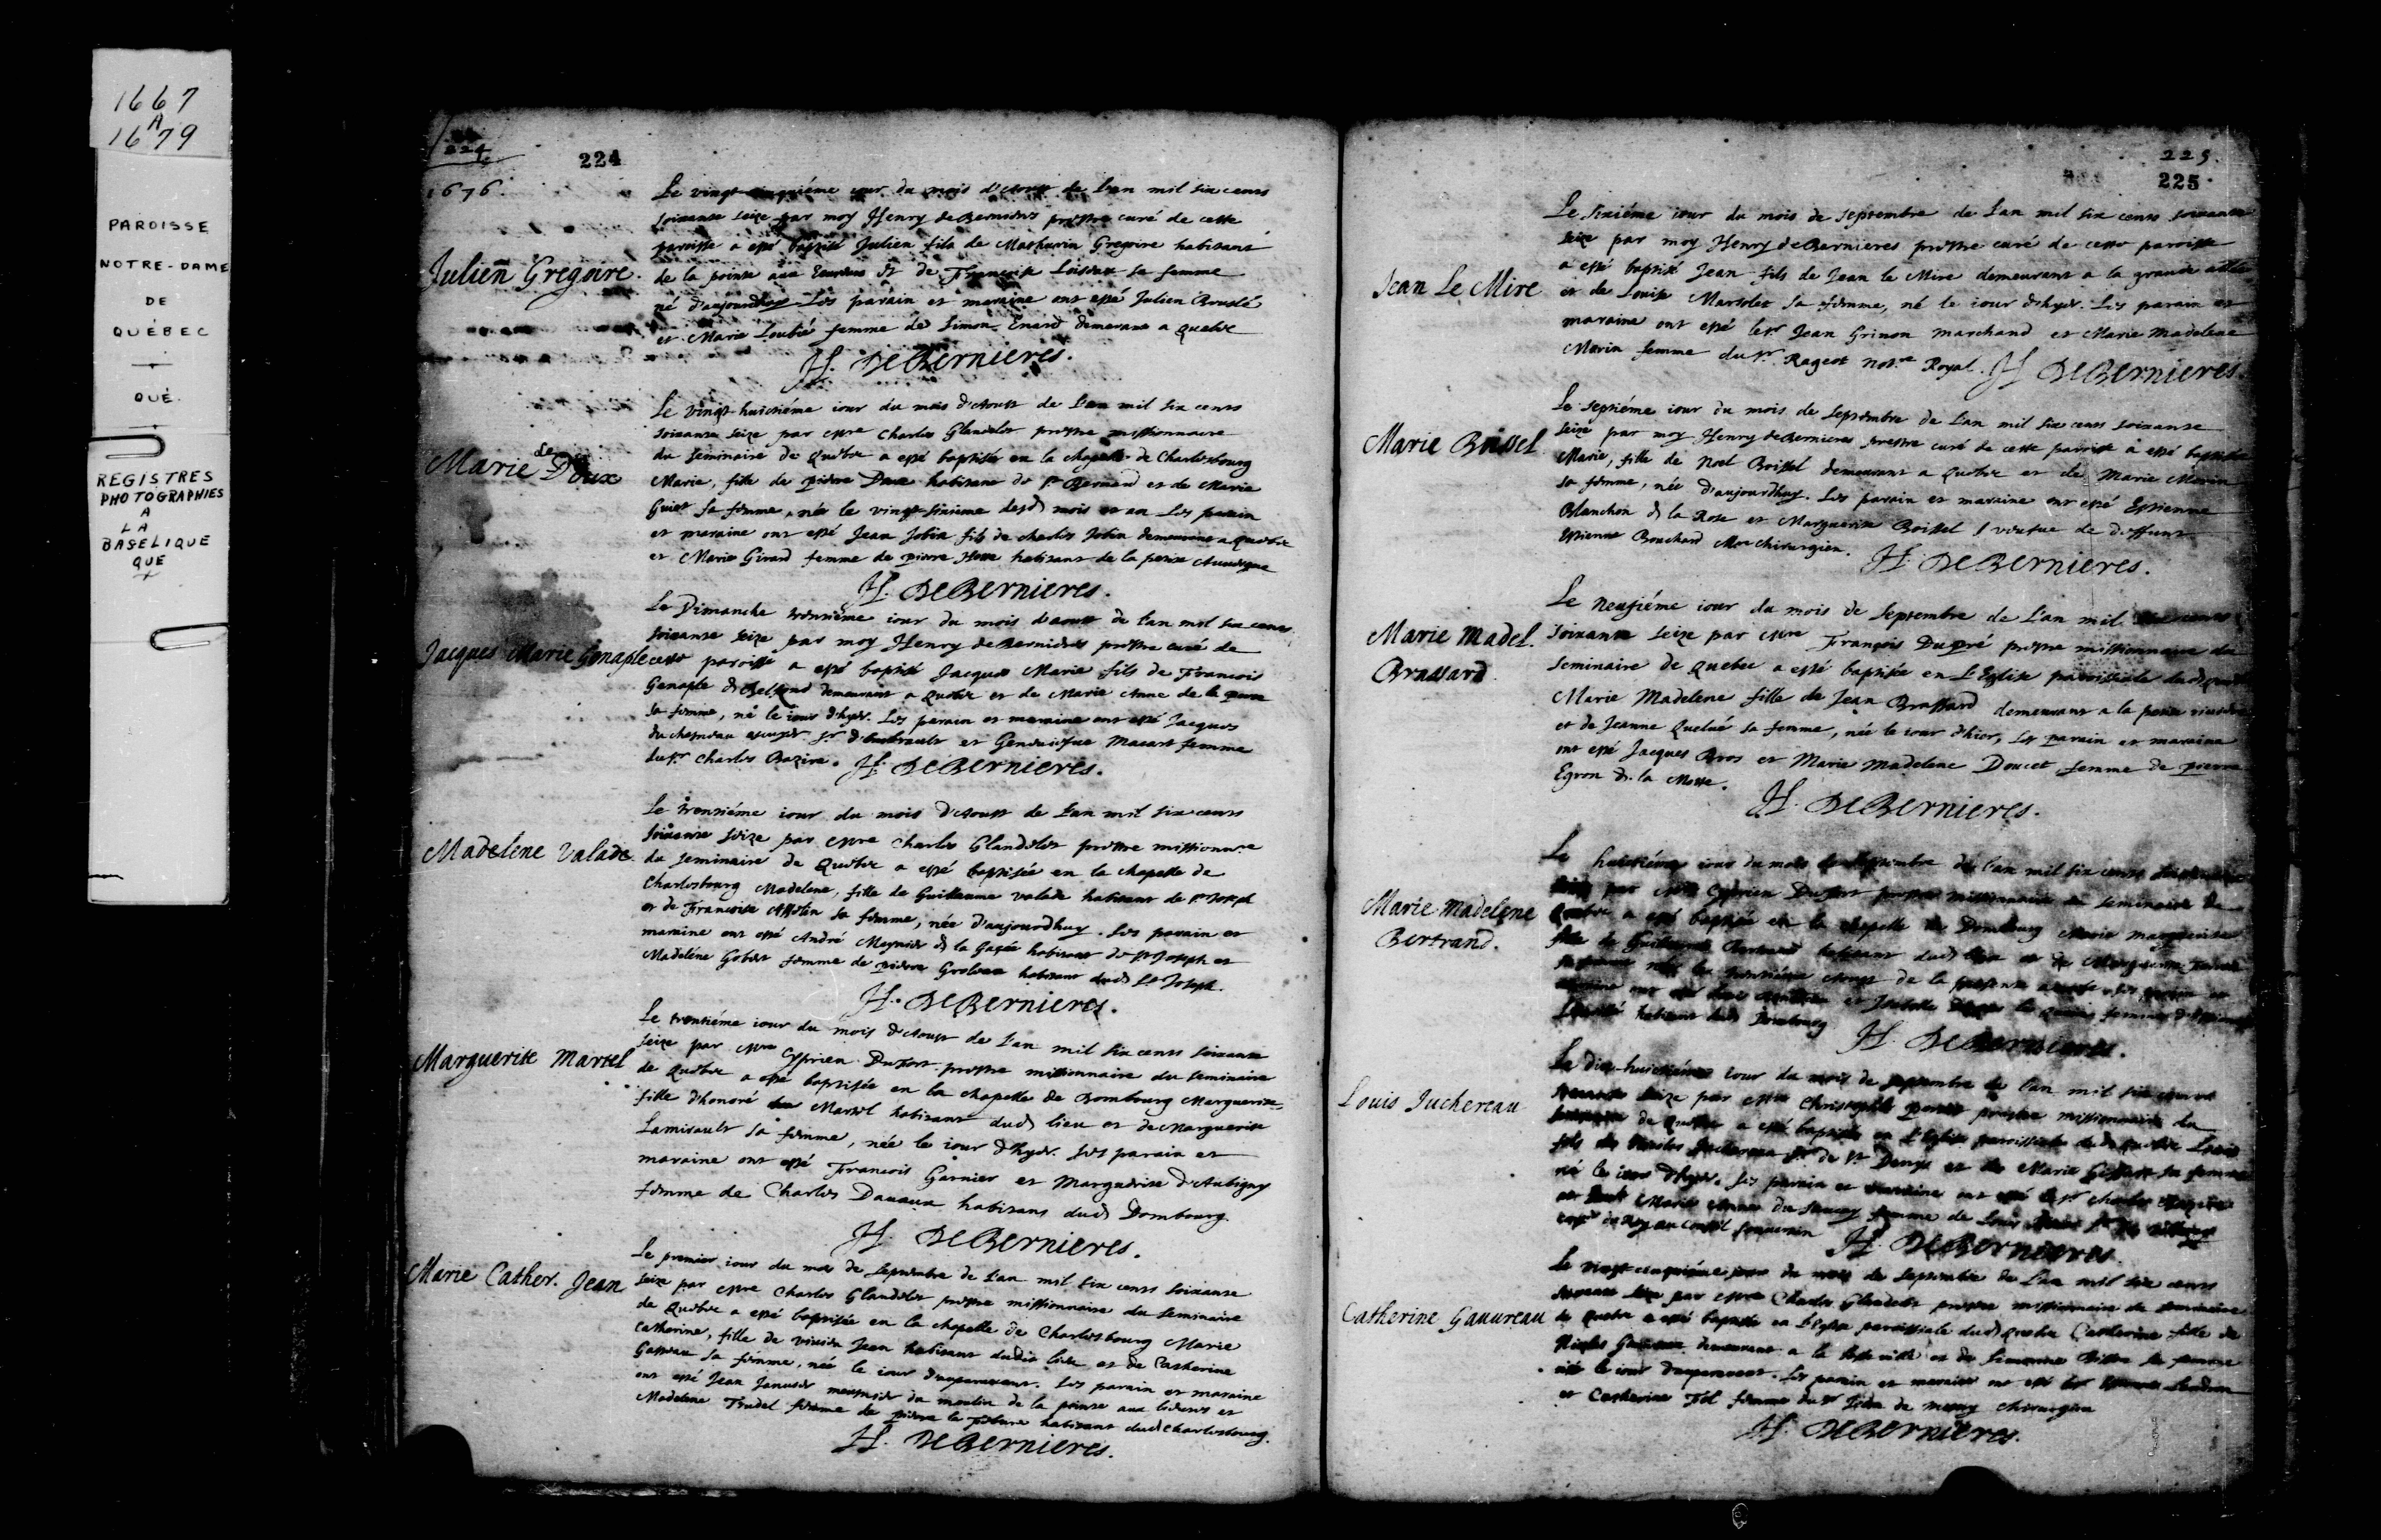 1667
A
1679
PAROISSE
NOTRE-DAME
DE
QUÉBEC
QUÉ.
REGISTRES
PHOTOGRAPHIES
A
LA
BASELIQUE
QUE
224
224
1676.
Julien Gregoire.
Le vingt-cinquiéme iour du mois d'Aoust de l'an mil six cents
soixante seize par moy Henry de Bernieres prestre curé de cette
paroisse a esté baptisé Julien fils de Mathurin Gregoire habitant
de la pointe aux et de Françoise Loiseau sa femme
né d'aujourdhuy Les parain et maraine ont esté Julien Bruslé
et Marie Loubié femme de Simon Enard demeurant a Quebec
H. DeBernieres.
Marie Le Doux
Le vingt-huictiéme iour du mois d'Aoust de l'an mil six cents
soixante seize par Mre Charles Glandelet prestre missionnaire
du seminaire de Quebec a esté baptisée en la chapelle de Charlesbourg
Marie, fille de pierre habitant de St Bernard et de Marie
Guiet sa femme, née le vingt-sixieme desd mois et an Les parain
et maraine ont esté Jean Jobin fils de charles Jobin demeurant a Quebec
et Marie Girard femme de pierre habitant de la petite Auuergne
H. DeBernieres.
Jacques Marie Genaple
Le Dimanche trentiéme iour du mois d'aoust de l'an mil six cents
soixante seize par moy Henry de Bernieres prestre curé de
cette paroisse a esté baptisé Jacques Marie fils de Francois
Genaple de Belfond demeurant a Quebec et de Marie Anne de la
sa femme, né le iour d'hyer. Les parain et maraine ont esté Jacques
du chesneau escuyer Sr d' et Geneuiefue Macart femme
du Sr Charles Bazire. H. DeBernieres.
Madelene Valade
Le trentiéme iour du mois d'Aoust de l'an mil six cents
soixante seize par Mre Charles Glandelet prestre missionnre
du seminaire de Quebec a esté baptisée en la chapelle de
Charlesbourg Madelene, fille de Guillaume valade habitant de St Joseph
et de Françoise sa femme, née d'aujourdhuy. Les parain et
maraine ont esté André Meynier de la habitant de St Joseph et
Madelene Gobert femme de pierre Groleau habitant dud St Joseph.
H. DeBernieres.
Marguerite Martel
Le trentiéme iour du mois d'Aoust de l'an mil six cents soixante
seize par Mre Cyprien Dufort prestre missionnaire du seminaire
de Quebec a esté baptisée en la chapelle de Dombourg Marguerite
fille d'honoré Martel habitant dud lieu et de Marguerite
Lamirault sa femme, née le iour d'hyer. Les parain et
maraine ont esté François Garnier et Marguerite d'Aubigny
femme de Charles Dauaux habitans dud Dombourg.
H. DeBernieres.
Marie Cather. Jean
Le premier iour du mois de Septembre de l'an mil six cents soixante
seize par Mre Charles Glandelet prestre missionnaire du seminaire
de Quebec a esté baptisée en la chapelle de Charlesbourg Marie
Catherine, fille de viuien Jean habitant dudit lieu et de Catherine
Gateau sa femme, née le iour d'auparauant. Les parain et maraine
ont esté Jean meusnier du moulin de la pointe aux lieures et
Madelene Trudel femme de pierre habitant dud Charlesbourg.
H. DeBernieres.
225.
225
Jean Le Mire
Le sixiéme iour du mois de septembre de l'an mil six cents soixante
seize par moy Henry de Bernieres prestre curé de cette paroisse
a esté baptisé Jean fils de Jean le Mire demeurant a la grande
et de Louise Marsolet sa femme, né le iour d'hyer. Les parain et
maraine ont esté le Sr Jean Grinon marchand et Marie Madelene
Morin femme du Sr Rageot notre Royal. H DeBernieres.
Marie Boissel
Le septiéme iour du mois de Septembre de l'an mil six cens soixante
seize par moy Henry de Bernieres prestre curé de cette paroisse a esté baptisée
Marie, fille de Noel Boissel demeurant a Quebec et de Marie Morin
sa femme, née d'aujourdhuy. Les parain et maraine ont esté Estienne
Blanchon de la Rose et Marguerite Boissel veufue de deffunt
Estienne Bouchard Me chirurgien. H. DeBernieres.
Marie Madel.
Brassard.
Le neufiéme iour du mois de Septembre de l'an mil six cents
soixante seize par Mre François Dupré prestre missionnaire du
seminaire de Quebec a esté baptisée en L'Eglise paroissiale dud Quebec
Marie Madelene fille de Jean Brassard demeurant a la petite riuiere
et de Jeanne Quelué sa femme, née le iour d'hier, Les parain et maraine
ont esté Jacques Bros et Marie Madelene Doucet femme de pierre
Egron de la Motte.
H. DeBernieres.
Marie-Madelene
Bertrand.
Le huictiéme iour du mois de Septembre de l'an mil six cents
par Mre Cyprien Dufort prestre missionnaire du seminaire de
Quebec a esté baptisée en la chapelle de Dombourg Marie marguerite
fille de Guillaume Bertrand habitant dud lieu et de Marguerite
née le trentiéme Aoust de la presente année. Les parain et
habitant dud Dombourg H. DeBernieres.
Louis Juchereau
Le dix-huictiéme iour du mois de septembre de l'an mil six cents
seize par Mre Christophle prestre missionnaire du
seminaire de Quebec a esté baptisé en l'Eglise paroissiale dud Quebec Louis
fils de Nicolas Juchereau Sr de St Denys et de Marie Giffart sa femme
né le iour d'hyer. Les parain et maraine ont esté le Sr charles
et Marie Anne du Saucey femme de Louis
du Roy au Conseil souuerain H. DeBernieres.
Catherine Gauureau
Le vingt-cinquiéme iour du mois de Septembre de l'an mil six cents
seize par Mre Charles Glandelet prestre missionnaire du seminaire
de Quebec a esté baptisée en l'Eglise paroissiale dud Quebec Catherine fille de
Nicolas demeurant a la basse ville et de Simonne sa femme
née le iour d'auparauant. Les parain et maraine ont esté
et Catherine femme du Sr Jean de mosny chirurgien
H. DeBernieres.